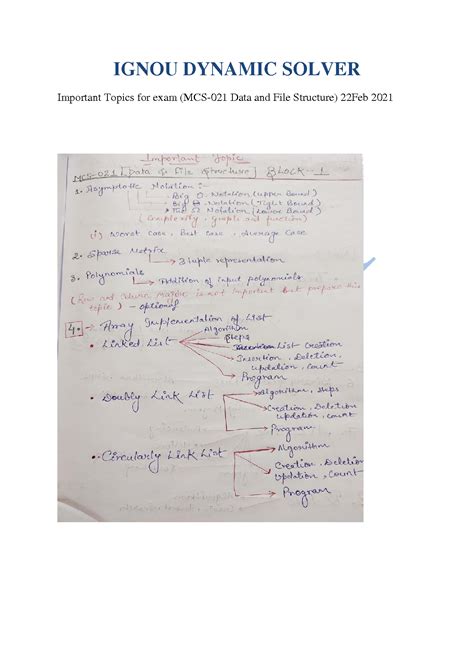 IGNOU DYNAMIC SOLVER
Important Topics for exam (MCS-021 Data and File Structure) 22Feb 2021
Important Topic
MCS-021 [Data & File Structure] BLOCK-1
1. Asymptotic Notation :-
Big O- Notation (upper Bound)
Big Θ Notation (Tight Bound)
Ω Notation (Lower Bound)
(Complexity, graph and function)
(i) Worst Case, Best Case, Average Case
2. Sparse Matrix
3 tuple representation
3. Polynomials
Addition of input polynomials
(Row and column is not important but prepare this
topic) - optional
4. → Array Implementation of List
Algorithm
• Linked List
Steps
List Creation
Insertion, Deletion,
updation, Count
Program
• Doubly Link List
Algorithm, steps
Creation, Deletion
updation, Count
Program
• Circularly Link List
Algorithm
Creation, Deletion
updation, Count
Program